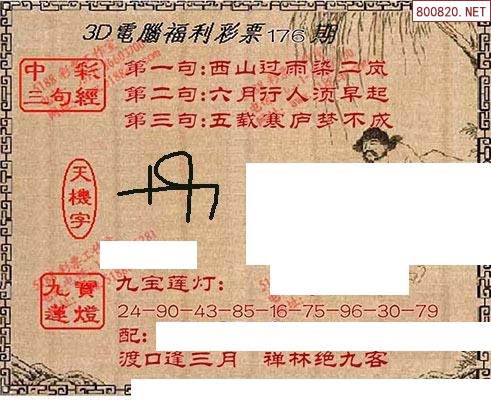 800820.NET
3D電腦福利彩票176期
中彩
三句經
第一句:西山过雨染二岚
第二句:六月行人须早起
第三句:五载寒庐梦不成
天機字
九寶蓮燈
九宝莲灯:
24-90-43-85-16-75-96-30-79
配:
渡口逢三月 禅林绝九客